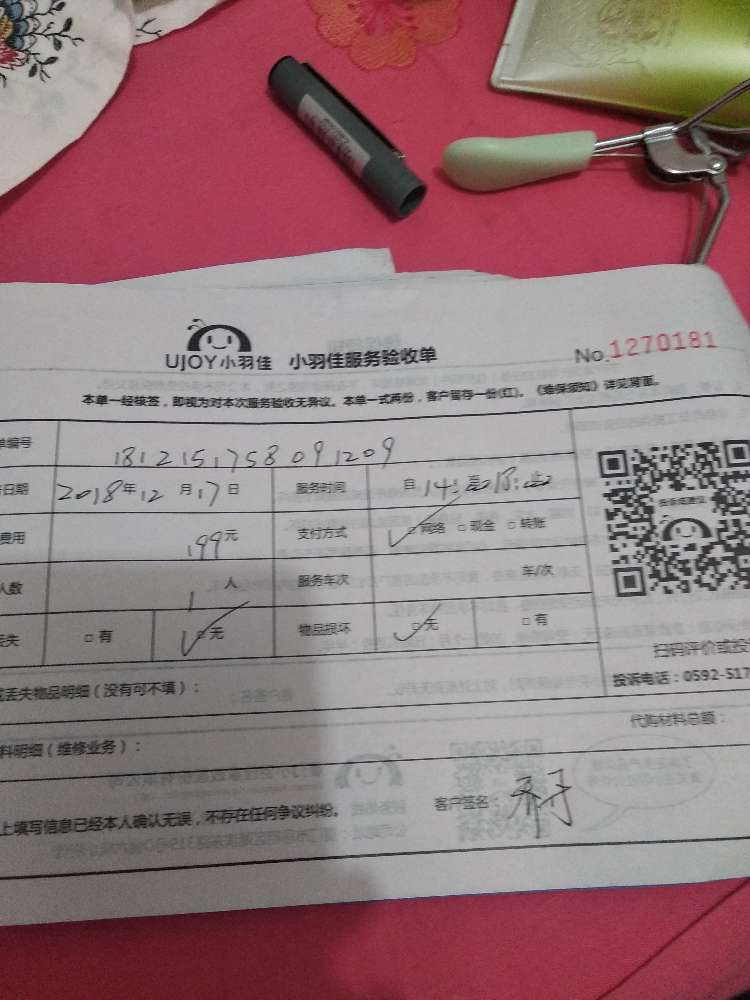 UJOY小羽佳 小羽佳服务验收单 No.1270181
本单一经核签，即视为对本次服务验收无异议。本单一式两份，客户留存一份(红)。《维保须知》详见背面。
单编号 181215175809 1209
日期 2018年12月17日 服务时间 自 14: 18:
费用 199元 支付方式 □网络 □现金 □转账
人数 1人 服务车次 车/次
丢失 □有 □无 物品损坏 □无 □有
扫码评价或投
丢失物品明细（没有可不填）： 投诉电话：0592-517
料明细（维修业务）： 代购材料总额：
上填写信息已经本人确认无误，不存在任何争议纠纷。 客户签名：